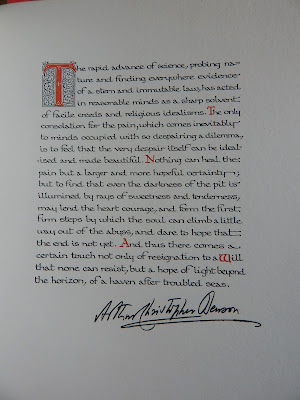 The rapid advance of science, probing na-
ture and finding everywhere evidence
of a stern and immutable law, has acted
in reasonable minds as a sharp solvent
of facile creeds and religious idealisms. The only
consolation for the pain, which comes inevitably
to minds occupied with so despairing a dilemma,
is to feel that the very despair itself can be ideal-
ised and made beautiful. Nothing can heal the
pain but a larger and more hopeful certainty;
but to find that even the darkness of the pit is
illumined by rays of sweetness and tenderness,
may lend the heart courage, and form the first
firm steps by which the soul can climb a little
way out of the abyss, and dare to hope that
the end is not yet. And thus there comes a
certain touch not only of resignation to a Will
that none can resist, but a hope of light beyond
the horizon, of a haven after troubled seas.
Arthur Christopher Benson